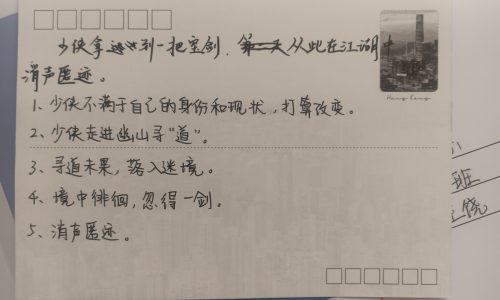 少侠拿到一把宝剑，从此在江湖中
消声匿迹。
1、少侠不满于自己的身份和现状，打算改变。
2、少侠走进幽山寻“道”。
3、寻道未果，落入迷境。
4、境中徘徊，忽得一剑。
5、消声匿迹。
Hong Kong
班